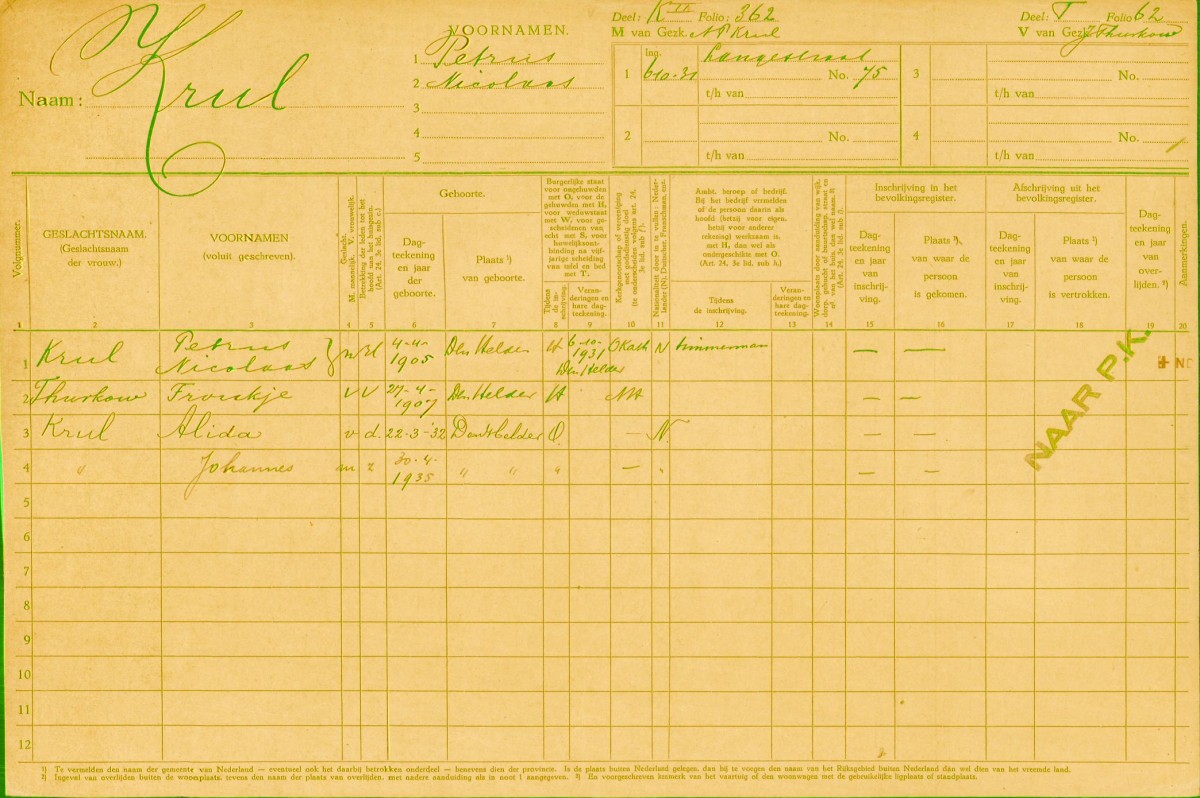 Naam: Krul
VOORNAMEN.
1 Petrus
2 Nicolaas
3
4
5
Deel: K Folio: 362
M van Gezk. N P Krul
Deel: T Folio 62
V van Gezk. J Thurkow
1 Ing. 6-10-31 Langestraat
No. 75
t/h van
2 No.
t/h van
3 No.
t/h van
4 No.
t/h van
Volgnummer.
GESLACHTSNAAM.
(Geslachtsnaam
der vrouw.)
VOORNAMEN
(voluit geschreven).
Geslacht.
M. mannelijk, V. vrouwelijk.
Betrekking der leden tot het
hoofd van het huisgezin.
(Art. 24, 3e lid, sub c.)
Geboorte.
Dag-
teekening
en jaar
der
geboorte.
Plaats ¹)
van geboorte.
Burgerlijke staat
voor ongehuwden
met O, voor de
gehuwden met H,
voor weduwstaat
met W, voor ge-
scheidenen van
echt met S, voor
huwelijksont-
binding na vijf-
jarige scheiding
van tafel en bed
met T.
Tijdens
de in-
schrijving.
Veran-
deringen en
hare dag-
teekening.
Kerkgenootschap of vereeniging
met godsdienstig doel
Nationaliteit door in te vullen: Neder-
lander (N), Duitscher, Franschman, enz.
Ambt, beroep of bedrijf.
Bij het bedrijf vermelden
of de persoon daarin als
hoofd (hetzij voor eigen,
hetzij voor anderer
rekening) werkzaam is,
met H, dan wel als
ondergeschikte met O.
(Art. 24, 3e lid, sub h.)
Tijdens
de inschrijving.
Veran-
deringen en
hare dag-
teekening.
Inschrijving in het
bevolkingsregister.
Dag-
teekening
en jaar
van
inschrij-
ving.
Plaats ¹),
van waar de
persoon
is gekomen.
Afschrijving uit het
bevolkingsregister.
Dag-
teekening
en jaar
van
afschrij-
ving.
Plaats ¹)
van waar de
persoon
is vertrokken.
Dag-
teekening
en jaar
van
over-
lijden. ²)
Aanmerkingen.
1 2 3 4 5 6 7 8 9 10 11 12 13 14 15 16 17 18 19 20
1 Krul Petrus Nicolaas m Hd 4-4-1905 Den Helder H 6-10-1931 Den Helder O Kath N timmerman — —
2 Thurkow Froukje v V 27-4-1907 Den Helder H NH — —
3 Krul Alida v d. 22-3-'32 Den Helder O. — N — —
4 " Johannes m z 30-4-1935 " " " — " — —
NAAR P.K.
5
6
7
8
9
10
11
12
¹) Te vermelden den naam der gemeente van Nederland — eventueel ook het daarbij betrokken onderdeel — benevens dien der provincie. Is de plaats buiten Nederland gelegen, dan bij te voegen den naam van het Rijksgebied buiten Nederland dan wel dien van het vreemde land.
²) Ingeval van overlijden buiten de woonplaats, tevens den naam der plaats van overlijden, met nadere aanduiding als in noot 1 aangegeven. ³) En voorgeschreven kenmerk van het vaartuig of den woonwagen met de gebruikelijke ligplaats of standplaats.